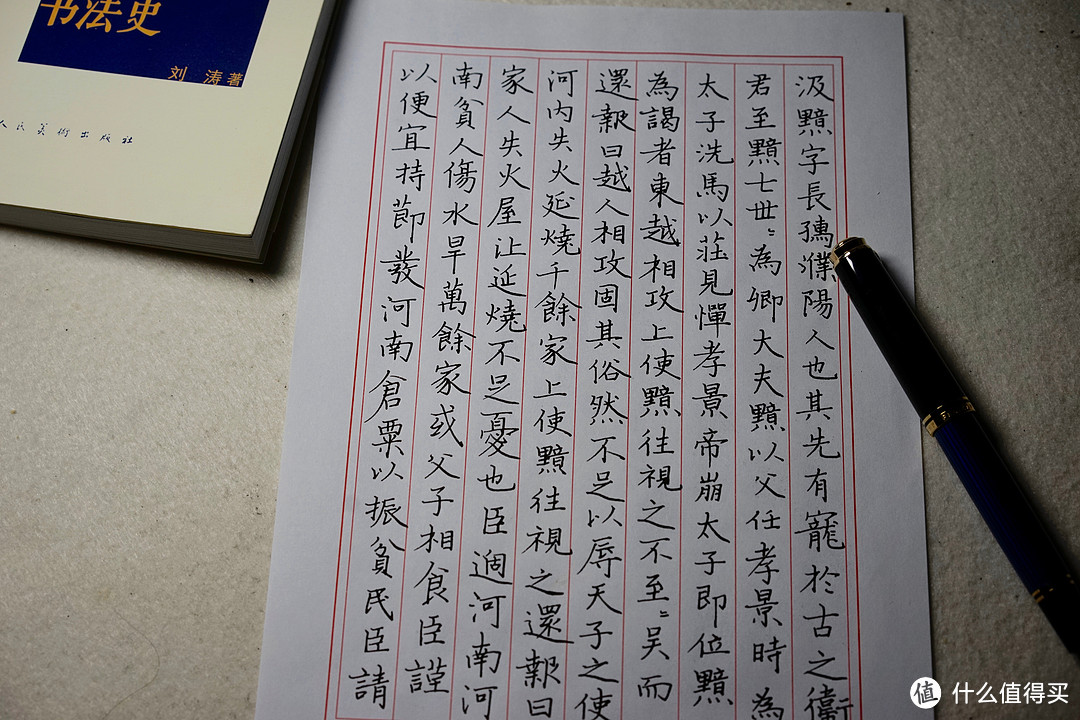 书法史
刘 涛著
人民美術出版社
汲黯字長孺濮陽人也其先有寵於古之衛
君至黯七世〻為卿大夫黯以父任孝景時為
太子洗馬以莊見憚孝景帝崩太子即位黯
為謁者東越相攻上使黯往視之不至〻吳而
還報曰越人相攻固其俗然不足以辱天子之使
河内失火延燒千餘家上使黯往視之還報曰
家人失火屋比延燒不足憂也臣過河南河
南貧人傷水旱萬餘家或父子相食臣謹
以便宜持節發河南倉粟以振貧民臣請
值 什么值得买